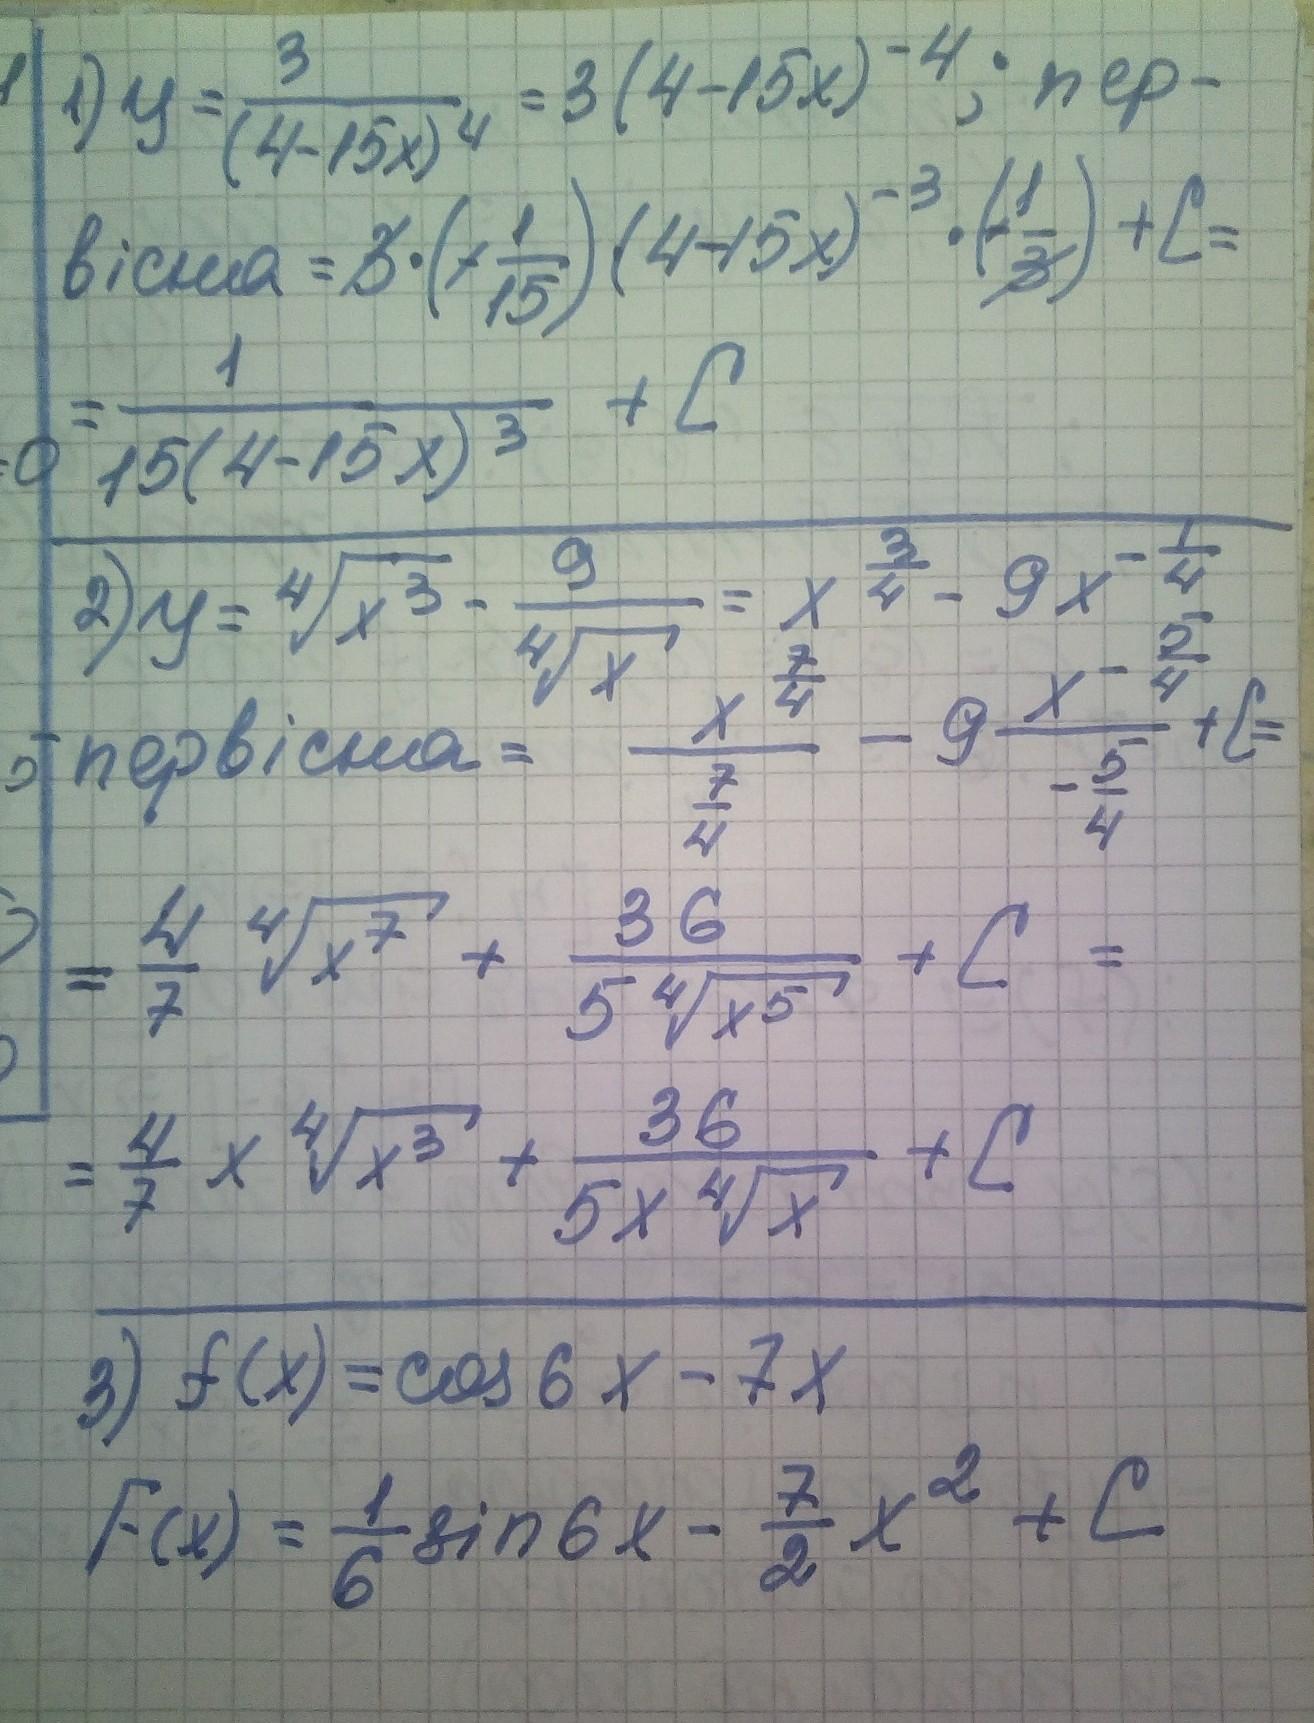 1) y = 3/(4-15x)^4 = 3(4-15x)^-4; пер-
вісна = 3·(-1/15)·(4-15x)^-3·(-1/3) + C =
= 1/(15(4-15x)^3) + C
2) y = ⁴√(x^3) - 9/⁴√x = x^(3/4) - 9x^(-1/4)
первісна = x^(7/4)/(7/4) - 9 x^(-5/4)/(-5/4) + C =
= 4/7 ⁴√(x^7) + 36/(5 ⁴√(x^5)) + C =
= 4/7 x ⁴√(x^3) + 36/(5x ⁴√x) + C
3) f(x) = cos6x - 7x
F(x) = 1/6 sin6x - 7/2 x^2 + C